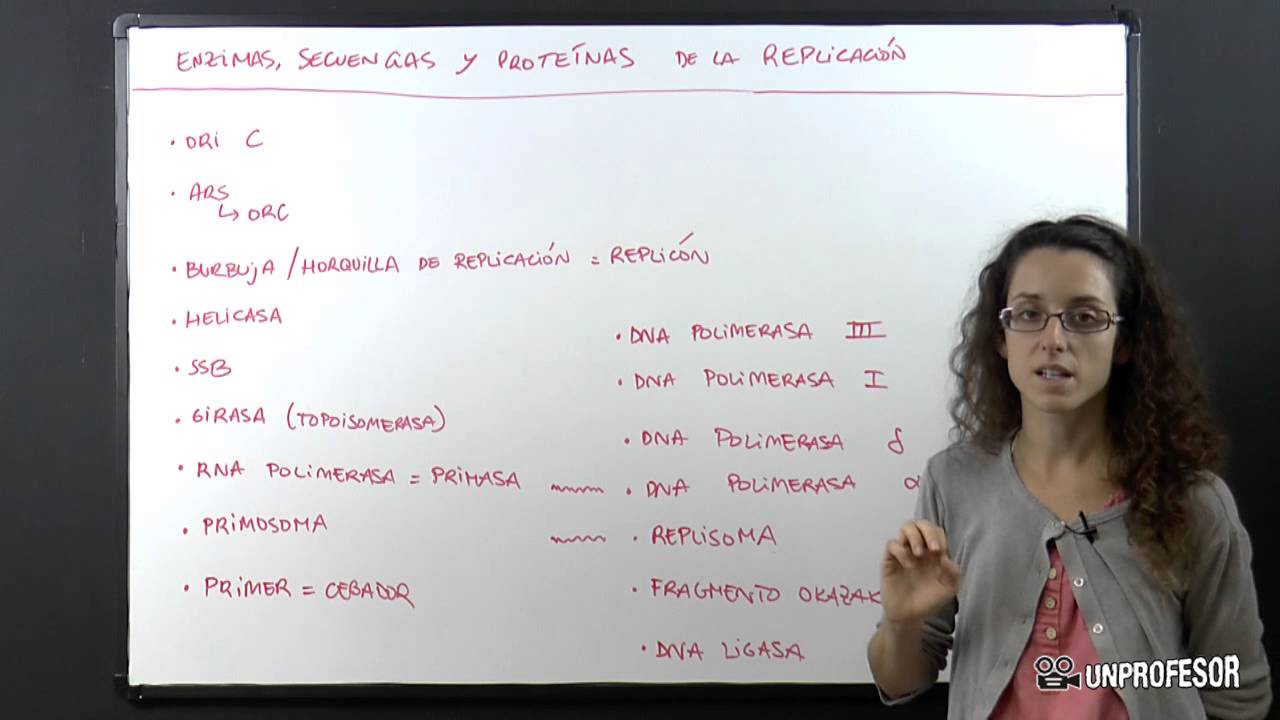 ENZIMAS, SECUENCIAS Y PROTEÍNAS DE LA REPLICACIÓN
· ORI C
· ARS
↳ ORC
· BURBUJA / HORQUILLA DE REPLICACIÓN = REPLICÓN
· HELICASA
· SSB
· GIRASA (TOPOISOMERASA)
· RNA POLIMERASA = PRIMASA
· PRIMOSOMA
· PRIMER = CEBADOR
· DNA POLIMERASA III
· DNA POLIMERASA I
· DNA POLIMERASA δ
· DNA POLIMERASA α
· REPLISOMA
· FRAGMENTO OKAZAK
· DNA LIGASA
UNPROFESOR